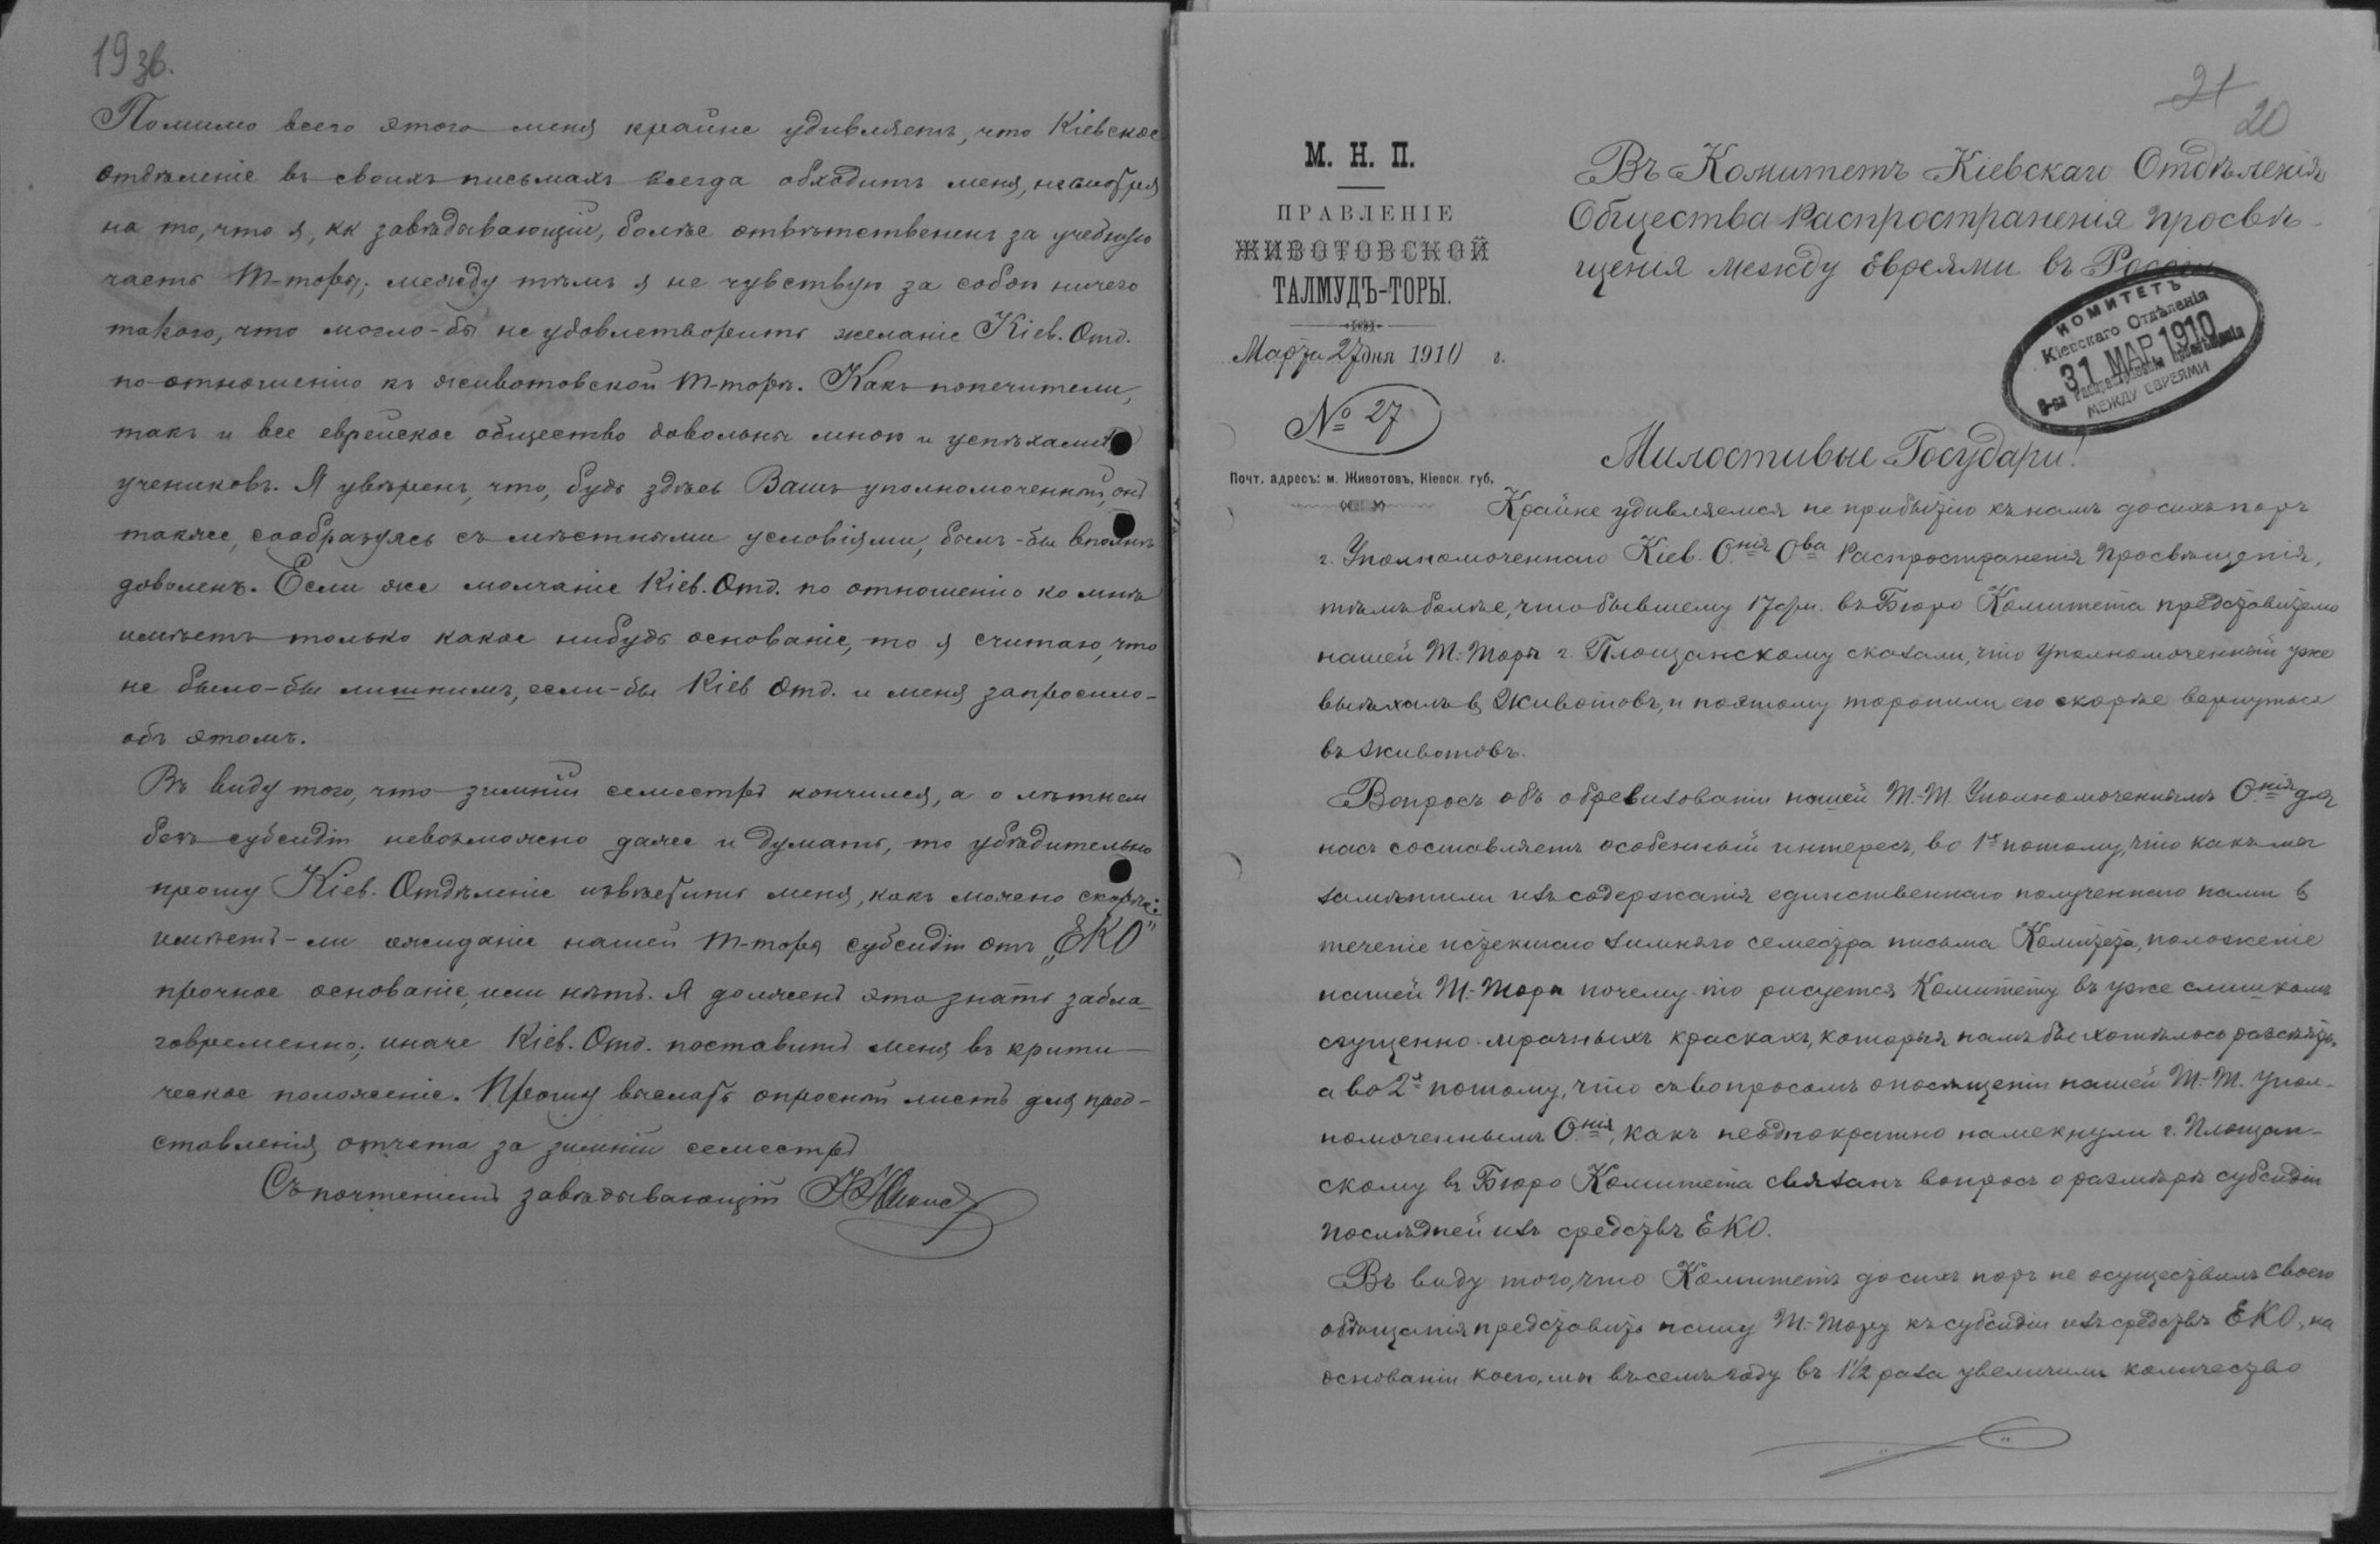 19 зв.
Помимо всего этого меня крайне удивляетъ, что Кіевское
Отдѣленіе въ своихъ письмахъ всегда обходитъ меня, несмотря
на то, что я, кк завѣдывающій, болѣе отвѣтствененъ за учебную
часть Т-торы; между тѣмъ я не чувствую за собою ничего
такого, что могло-бы не удовлетворить желаніе Кіев. Отд.
по отношенію къ животовской Т-торѣ. Какъ попечители,
такъ и все еврейское общество довольны мною и успѣхами
учениковъ. Я увѣренъ, что, будь здѣсь Вашъ уполномоченный, онъ
также, сообразуясь съ мѣстными условіями, былъ-бы вполнѣ
доволенъ. Если же молчаніе Кіев. Отд. по отношенію ко мнѣ
имѣетъ только какое нибудь основаніе, то я считаю, что
не было-бы лишнимъ, если-бы Кіев Отд. и меня запросило-
объ этомъ.
Въ виду того, что зимній семестръ кончился, а о лѣтнем
безъ субсидіи невозможно даже и думать, то убѣдительно
прошу Кіев. Отдѣленіе извѣстить меня, какъ можно скорѣе:
имѣетъ-ли ожиданіе нашей Т-торы субсидіи отъ „ЕКО"
прочное основаніе, или нѣтъ. Я долженъ это знать забла-
говременно; иначе Кіев. Отд. поставитъ меня въ крити-
ческое положеніе. Прошу выслать опросный листъ для пред-
ставленія отчета за зимній семестръ
Съ почтеніемъ завѣдывающій
21
20
М. Н. П.
ПРАВЛЕНІЕ
ЖИВОТОВСКОЙ
ТАЛМУДЪ-ТОРЫ.
Марта 27 дня 1910 г.
№ 27
Почт. адресъ: м. Животовъ, Кіевск. губ.
Въ Комитетъ Кіевскаго Отдѣленія
Общества Распространенія Просвѣ-
щенія между Евреями въ Россіи
КОМИТЕТЪ
Кіевскаго Отдѣленія
31 МАР. 1910
О-ва Распространенія Просвѣщенія
МЕЖДУ ЕВРЕЯМИ
Милостивые Государи!
Крайне удивляемся не прибытію къ намъ досихъ поръ
г. Уполномоченнаго Кіев. О.нія О.ва Распространенія Просвѣщенія,
тѣмъ болѣе, что бывшему 17 с/м. въ Бюро Комитета представителю
нашей Т.-Торы г. Площанскому сказали, что Уполномоченный уже
выѣхалъ в Животовъ, и поэтому торопили его скорѣе вернуться
въ Животовъ.
Вопросъ объ обревизованіи нашей Т.-Т. Уполномоченнымъ О.нія для
насъ составляетъ особенный интересъ, во 1х потому, что какъ мы
замѣтили изъ содержанія единственнаго полученнаго нами в
теченіе истекшаго зимняго семестра письма Комитета, положеніе
нашей Т.-Торы почему-то рисуется Комитету въ уже слишкомъ
сгущенно-мрачныхъ краскахъ, которыя намъ бы хотѣлось разсѣять,
а во 2х потому, что съ вопросомъ о посѣщеніи нашей Т.-Т. Упол-
номоченнымъ О.нія, какъ неоднократно намекнули г. Площан-
скому въ Бюро Комитета связанъ вопросъ о размѣрѣ субсидіи
послѣдней изъ средствъ ЕКО.
Въ виду того, что Комитетъ досихъ поръ не осуществилъ своего
обѣщанія представить нашу Т.-Тору къ субсидіи изъ средствъ ЕКО, на
основаніи коего, мы въ семъ году въ 1½ раза увеличили количество